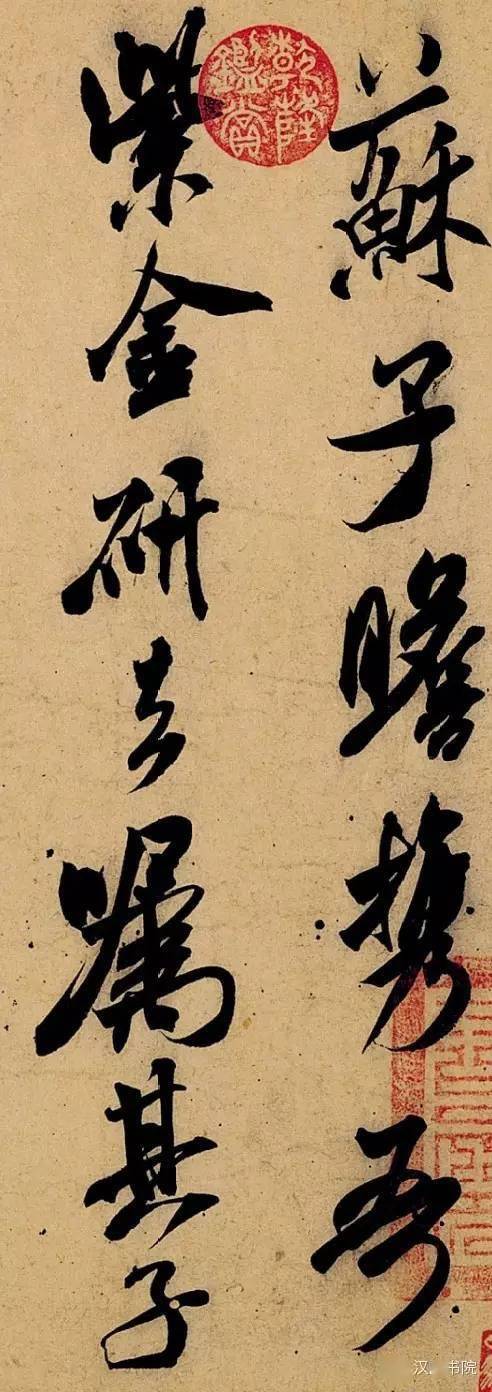 蘇子瞻携吾
紫金研去嘱其子
乾隆鑑賞
汉．书院